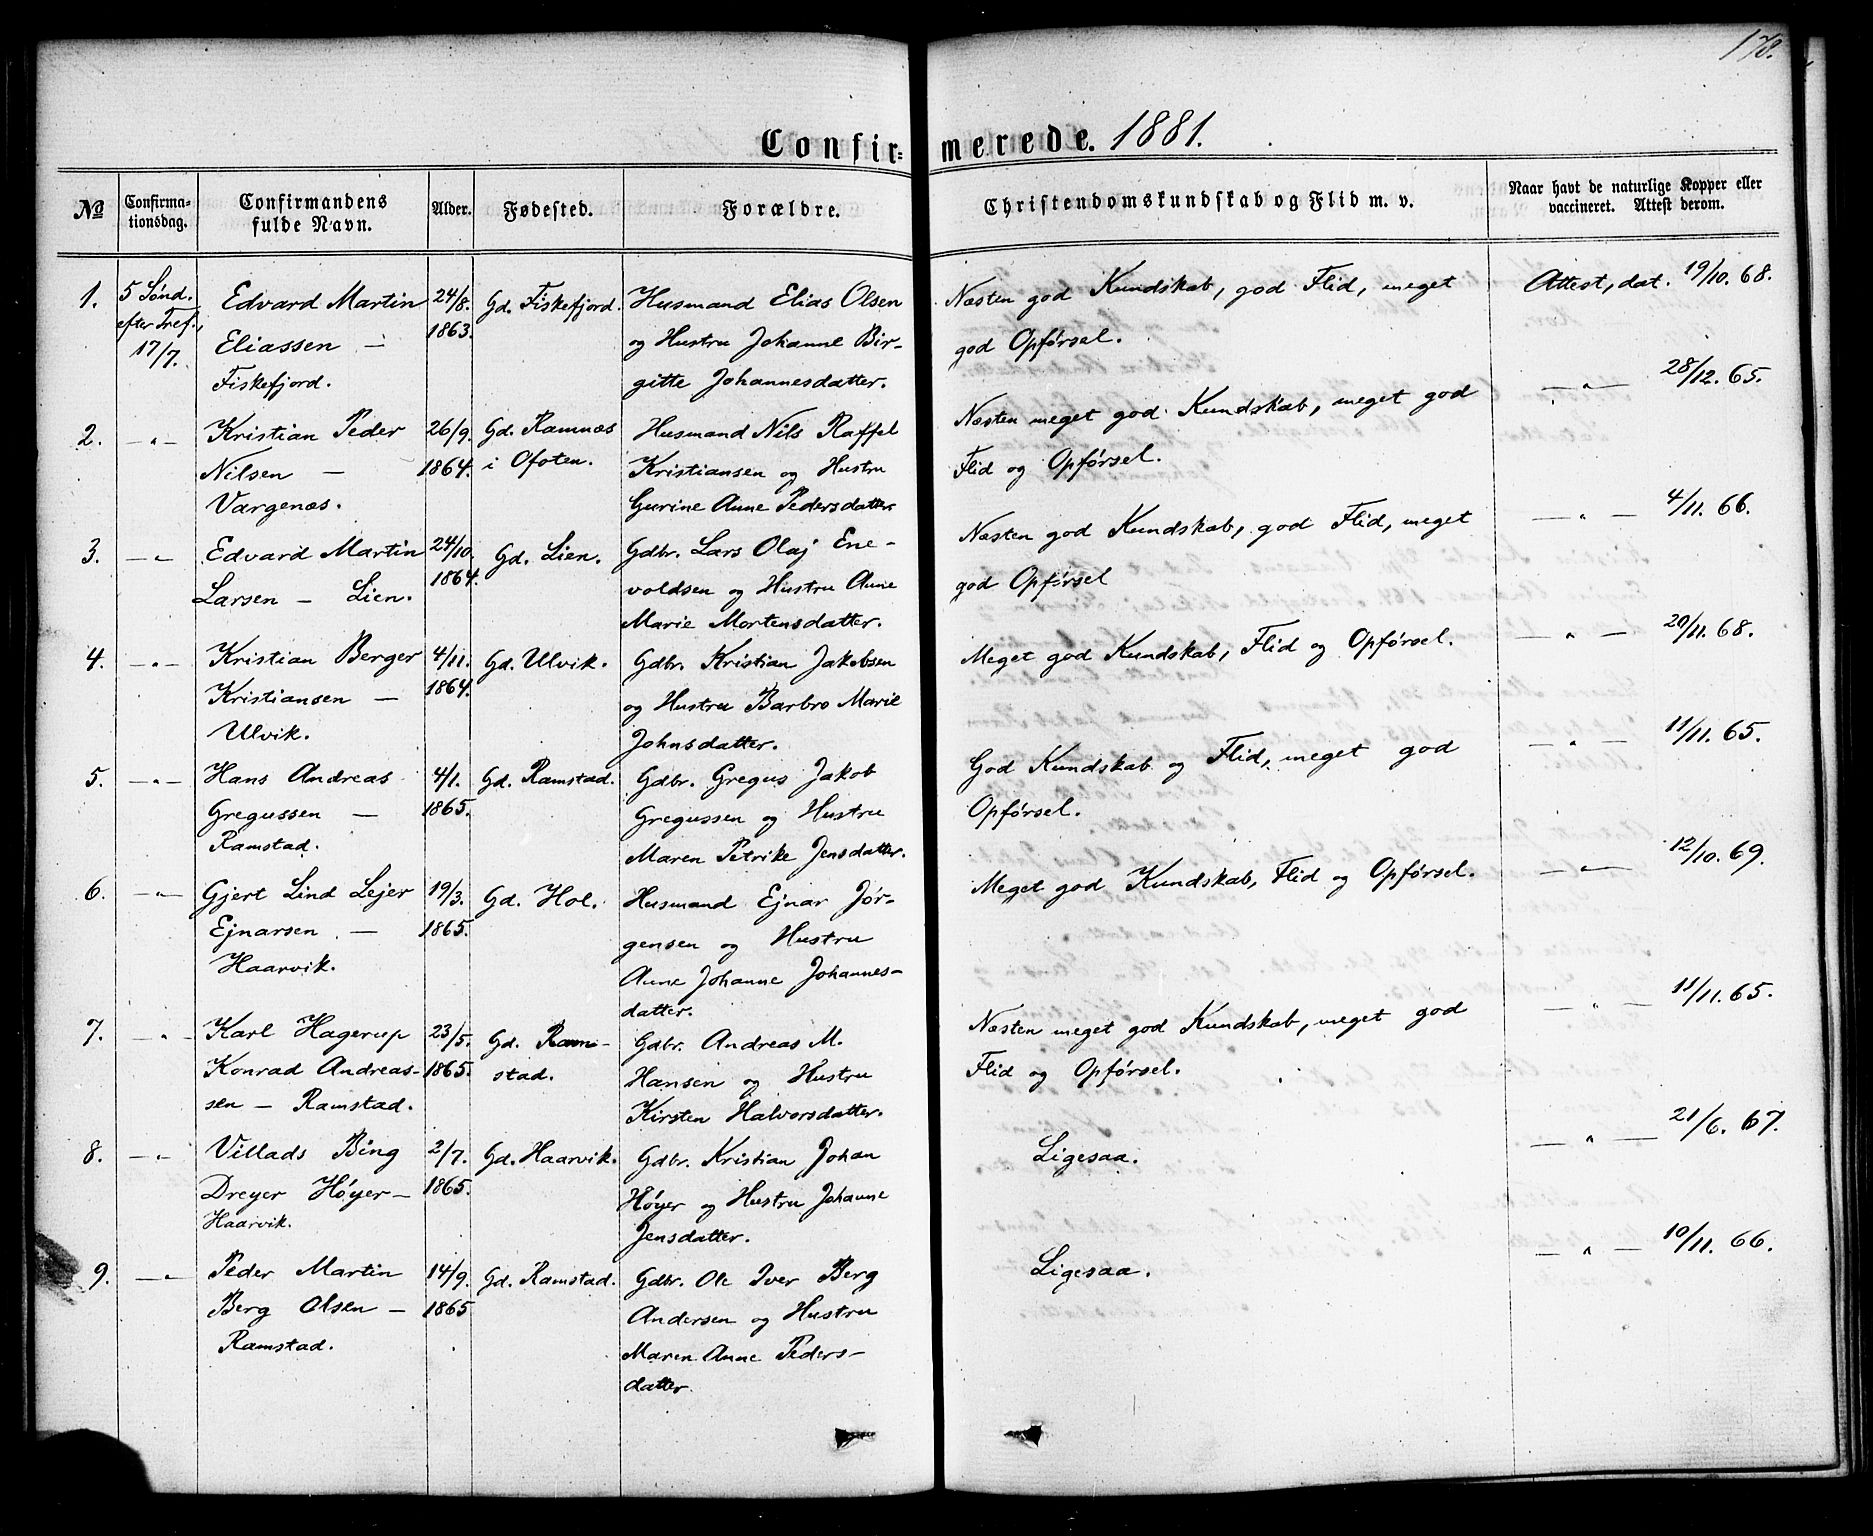 178.
Confir= merede. 1881.
No
Confirma-
tionsdag.
Confirmandens
fulde Navn.
Alder.
Fødested.
Forældre.
Christendomskundskab og Flid m. v.
Naar havt de naturlige Kopper eller
vaccineret. Attest derom.
1.
5 Sønd.
efter Tref.,
17/7.
Edvard Martin
Eliassen —
Fiskefjord.
24/8.
1863.
Gd. Fiskefjord.
Husmand Elias Olsen
og Hustru Johanne Bir-
gitte Johannesdatter.
Næsten god Kundskab, god Flid, meget
god Opførsel.
Attest, dat. 19/10. 68.
2.
— „ —
Kristian Peder
Nilsen —
Vargenæs.
26/9.
1864.
Gd. Ramnæs
i Ofoten.
Husmand Nils Raffel
Kristiansen og Hustru
Gurine Anne Pedersdatter
Næsten meget god Kundskab, meget god
Flid og Opførsel.
— „ — 28/12. 65.
3.
— „ —
Edvard Martin
Larsen — Lien.
24/10.
1864.
Gd. Lien.
Gdbr. Lars Olaj Ene-
voldsen og Hustru Anne
Marie Mortensdatter.
Næsten god Kundskab, god Flid, meget
god Opførsel
— „ — 4/11. 66.
4.
— „ —
Kristian Berger
Kristiansen —
Ulvik.
4/11.
1864.
Gd. Ulvik.
Gdbr. Kristian Jakobsen
og Hustru Barbro Marie
Johnsdatter.
Meget god Kundskab, Flid og Opførsel.
— „ — 20/11. 68.
5.
— „ —
Hans Andreas
Gregussen —
Ramstad.
4/1.
1865.
Gd. Ramstad.
Gdbr. Gregus Jakob
Gregussen og Hustru
Maren Petrike Jensdatter.
God Kundskab og Flid, meget god
Opførsel.
— „ — 11/11. 65.
6.
— „ —
Gjert Lind Lejer
Ejnarsen —
Haarvik.
19/3.
1865.
Gd. Hol.
Husmand Ejnar Jør-
gensen og Hustru
Anne Johanne Johannes-
datter.
Meget god Kundskab, Flid og Opførsel.
— „ — 12/10. 69.
7.
— „ —
Karl Hagerup
Konrad Andreas-
sen — Ramstad.
23/5.
1865.
Gd. Ram-
stad.
Gdbr. Andreas M.
Hansen og Hustru
Kirsten Halvorsdatter.
Næsten meget god Kundskab, meget god
Flid og Opførsel.
— „ — 11/11. 65.
8.
— „ —
Villads Bing
Dreyer Høyer —
Haarvik.
2/7.
1865.
Gd. Haarvik.
Gdbr. Kristian Johan
Høyer og Hustru Johanne
Jensdatter.
Ligesaa.
— „ — 21/6. 67.
9.
— „ —
Peder Martin
Berg Olsen —
Ramstad.
14/9.
1865
Gd. Ramstad.
Gdbr. Ole Iver Berg
Andersen og Hustru
Maren Anne Peders-
datter.
Ligesaa.
— „ — 10/11. 66.